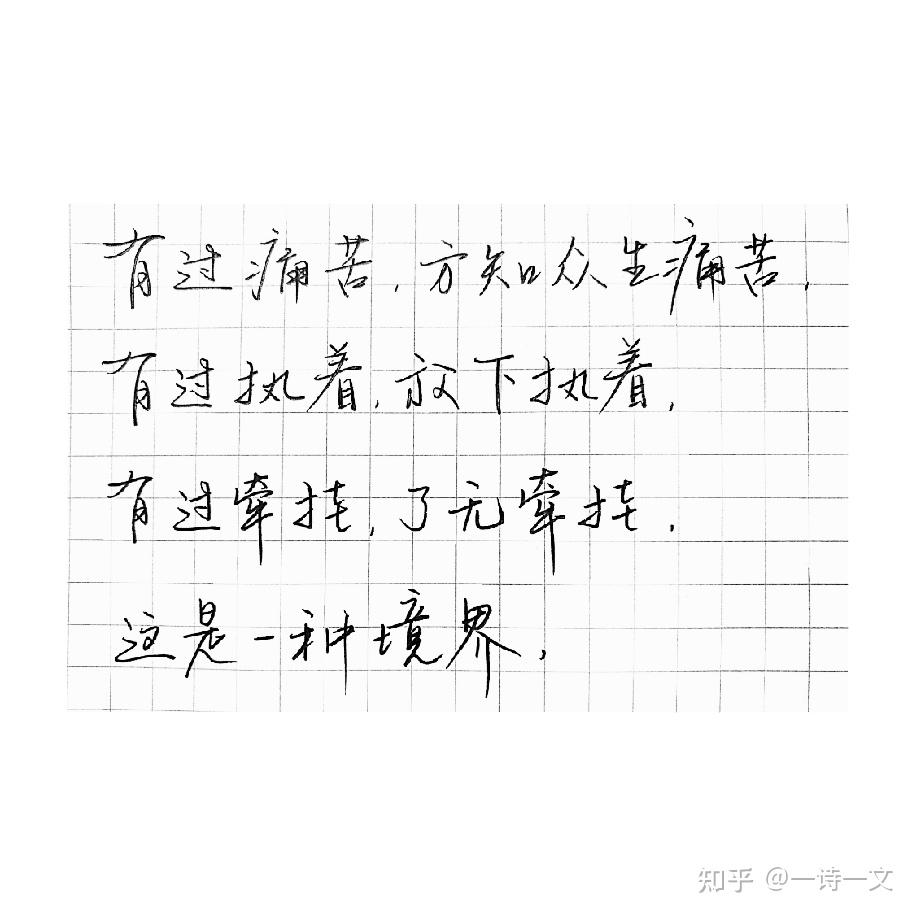 有过痛苦，方知众生痛苦，
有过执着，放下执着，
有过牵挂，了无牵挂，
这是一种境界，
知乎 @一诗一文